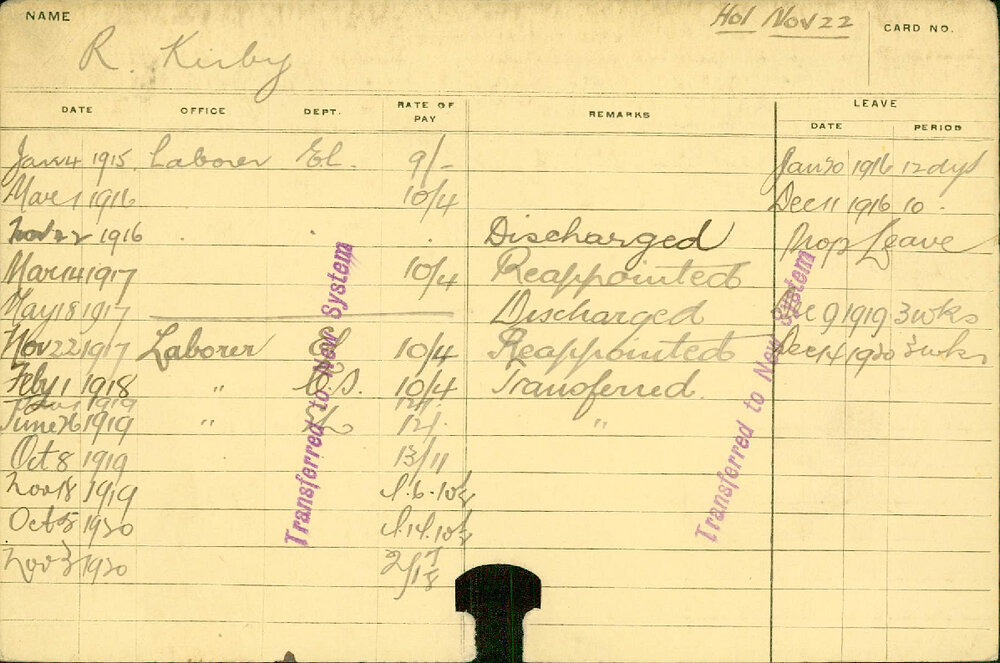 NAME
R. Kirby
Hol Nov 22
CARD NO.
DATE OFFICE DEPT. RATE OF PAY REMARKS LEAVE
DATE PERIOD
Jan 4 1915 Laborer El. 9/- Jan 20 1916 12 dys
Mar 1 1916 10/4 Dec 11 1916 10
Nov 22 1916 Discharged Prop Leave
Mar 14 1917 10/4 Reappointed
May 18 1917 Discharged Dec 9 1919 3 wks
Nov 22 1917 Laborer El 10/4 Reappointed Dec 14 1920 3 wks
Feby 1 1918 " 10/4 Transferred.
1919 12/1
June 26 1919 " 12/1 "
Oct 8 1919 13/11
Nov 18 1919
Oct 5 1920
Nov 3 1920
Transferred to New System
Transferred to New System